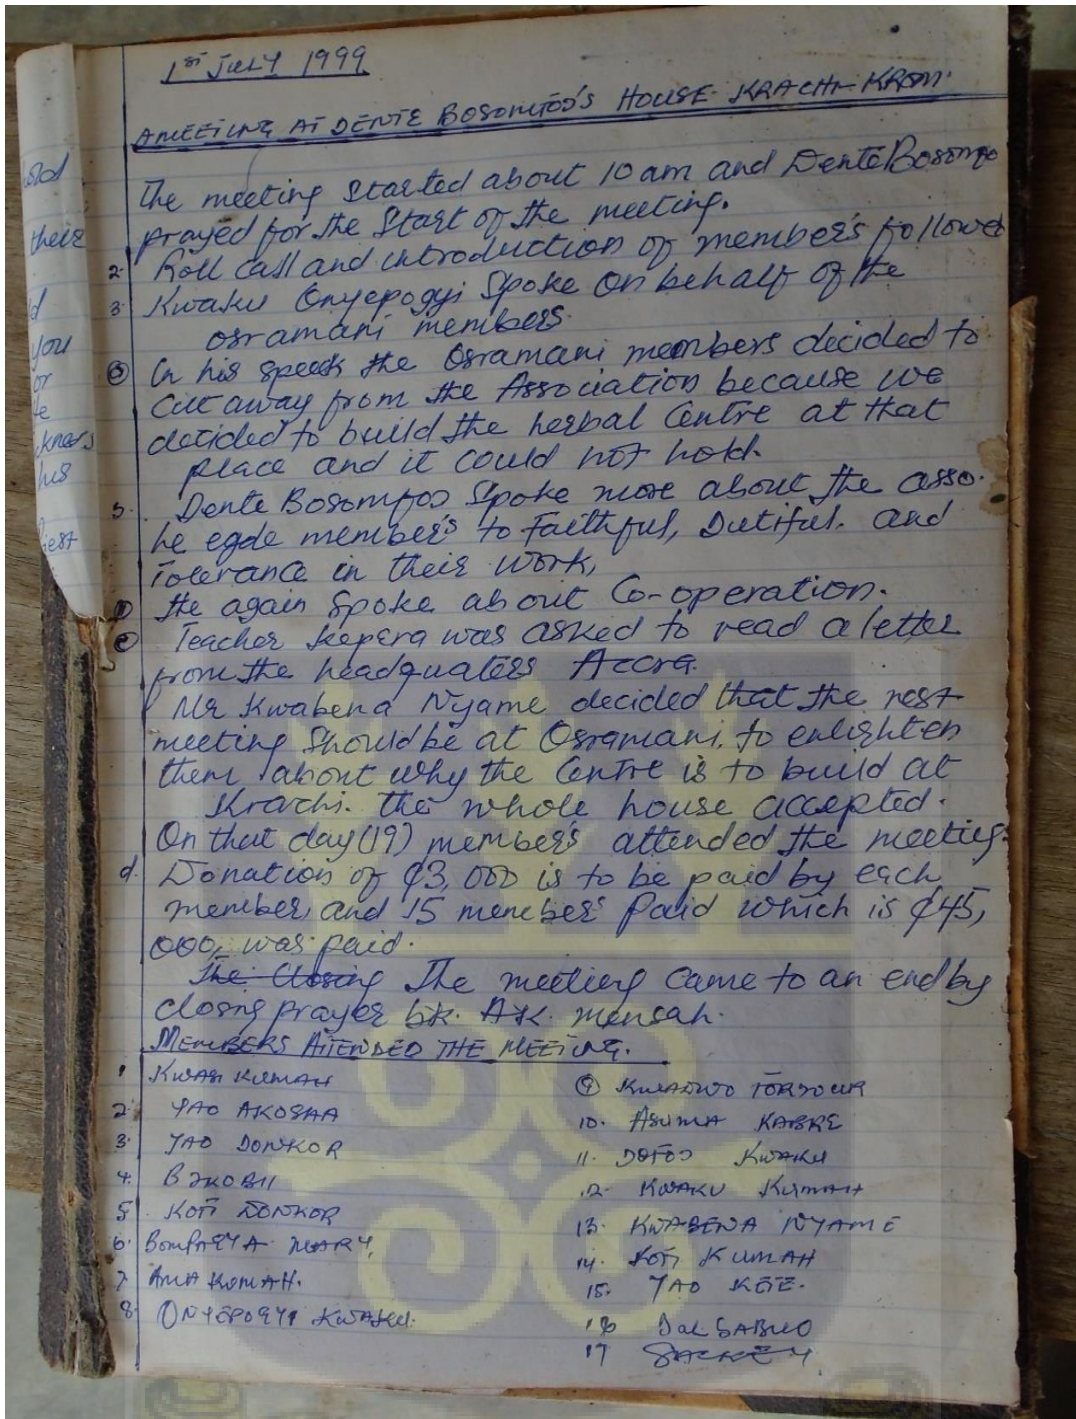 1st JULY 1999
A MEETING AT DENTE BOSOMFOƆ'S HOUSE KRACHI-KROM.
The meeting started about 10 am and Dente Bosomfo
prayed for the Start of the meeting.
2. Roll call and introduction of member's followed
3. Kwaku Onyepogyi Spoke on behalf of the
osramani members.
In his speek the Osramani members decided to
Cut away from the Association because we
decided to build the herbal Centre at that
place and it could not hold.
5. Dente Bosomfoɔ Spoke more about the asso.
he egde member's to Faithful, Dutiful. and
Tolerance in their work,
He again Spoke about Co-operation.
Teacher Kepera was asked to read a letter
from the headquaters Accra.
Mr Kwabena Nyame decided that the next
meeting Should be at Osramani. to enlighten
them about why the Centre is to build at
Krachi. the whole house accepted.
On that day (19) member's attended the meeting.
d. Donation of ¢3,000 is to be paid by each
member, and 15 member's Paid which is ¢45,
000, was paid.
The Closing The meeting came to an end by
closing prayer bk. A.K. mensah.
MEMBERS ATTENDED THE MEETING.
1 KWASI KUMAH
2 YAO AKOSAA
3. YAO DONKOR
4. BƆKOBII
5. KOFI DONKOR
6. MARY,
7. AMA KUMAH.
8. ONYEPOGYI KWAKU.
9 KWADWO TORDOUR
10. ASUMA KABRE
11. DOFOƆ KWAKU
12. KWAKU KUMAH
13. KWABENA NYAME
14. KOFI KUMAH
15. YAO KETE.
16
17 SACKEY
their
you
or
his